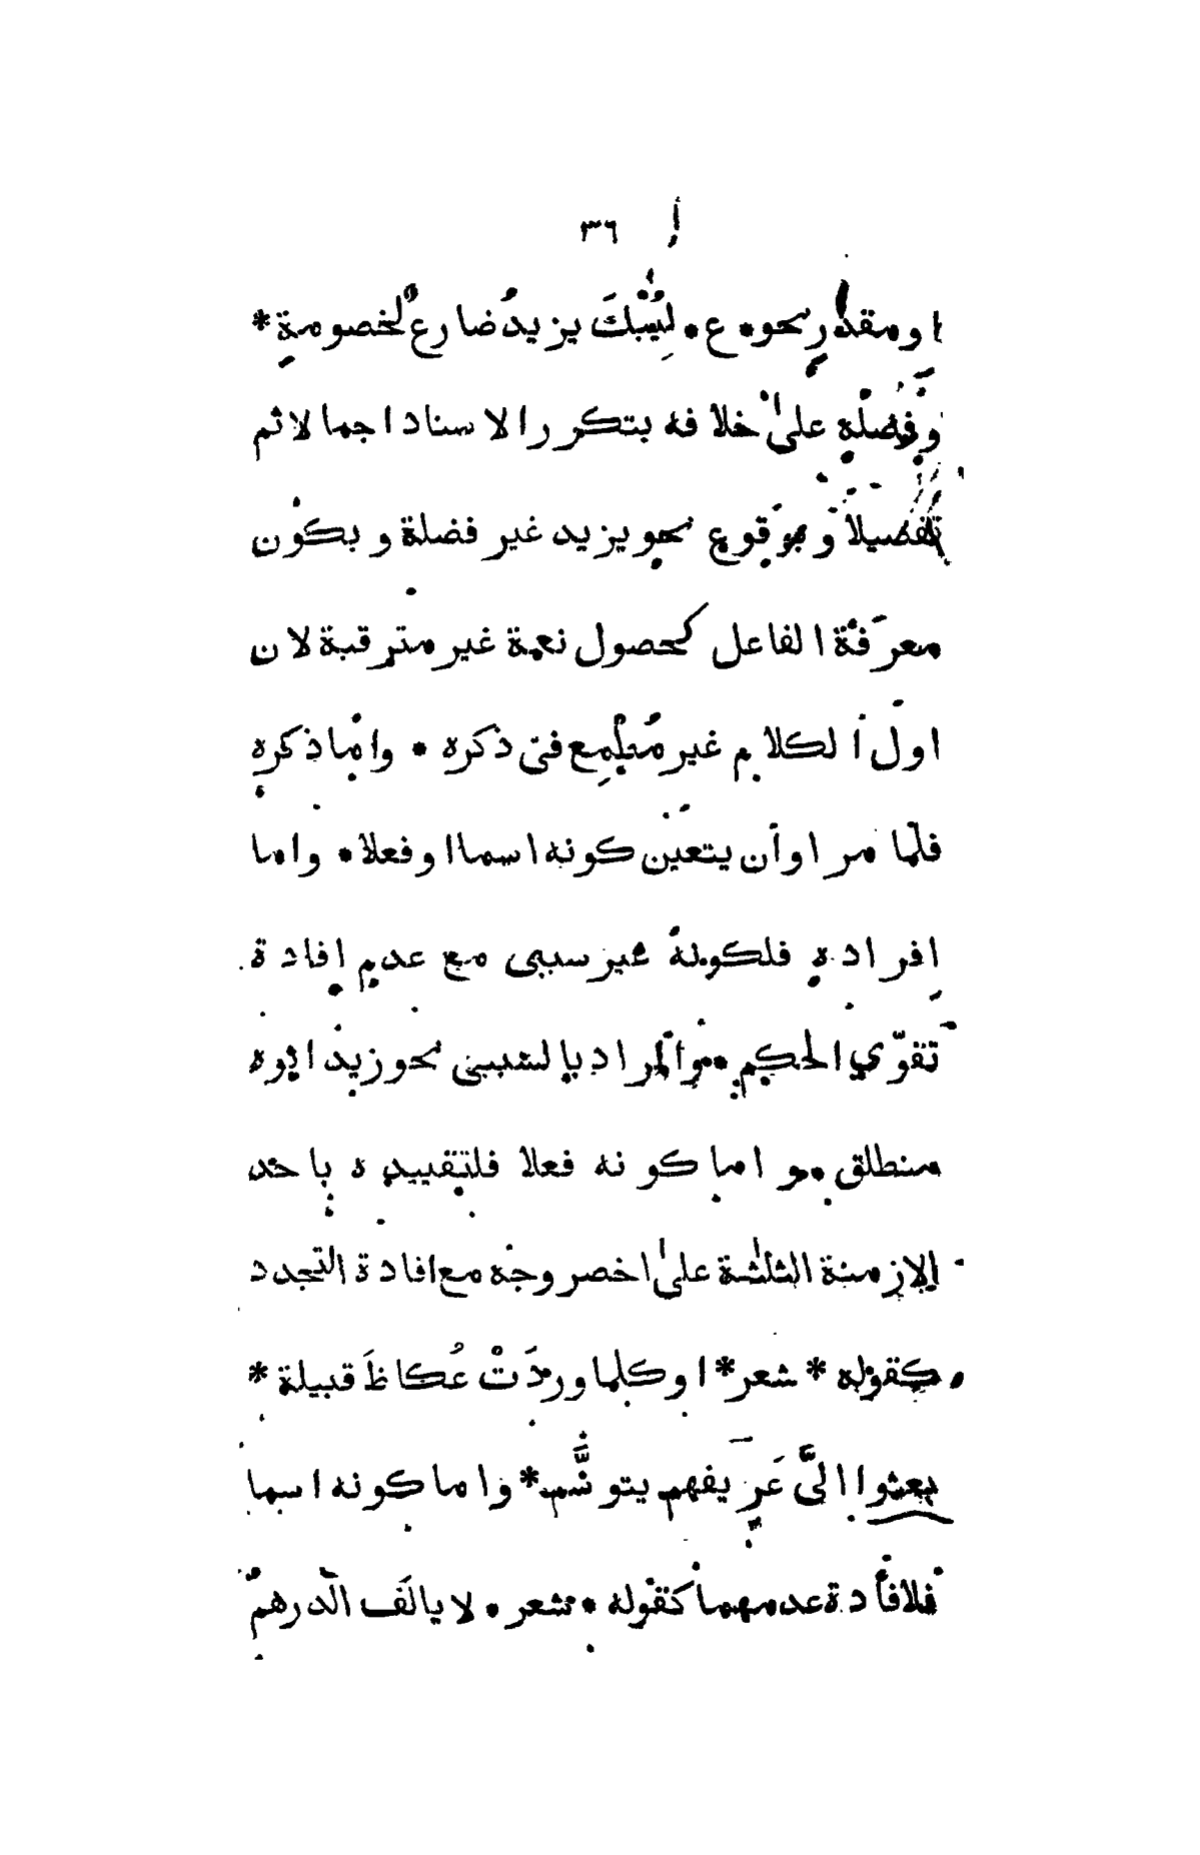 ٣٦
او مقدر نحو * ع * لِيُبْكَ يزيدُ ضارعٌ لخصومةٍ *
وفضله على خلافه بتكرر الاسناد اجمالا ثم
تفصيلا و بوقوع نحو يزيد غير فضلة و بكون
معرفة الفاعل كحصول نعمة غير مترقبة لان
اول الكلام غير مُطمِع فى ذكره * واما ذكره
فلما مر او أن يتعين كونه اسما او فعلا * واما
افراده فلكونه غير سببى مع عدم افادة
تقوّي الحكم * والمراد بالسببى نحو زيد ابوه
منطلق * و اما كو نه فعلا فلتقييد ه باحد
الازمنة الثلثة على اخصر وجه مع افادة التجدد
كقوله * شعر * او كلما وردَتْ عُكاظَ قبيلة *
بعثوا الىَّ عَرِيفهم يتوسَّم * واما كونه اسما
فلافادة عدمهما كقوله * شعر * لا يالَف الدرهمُ